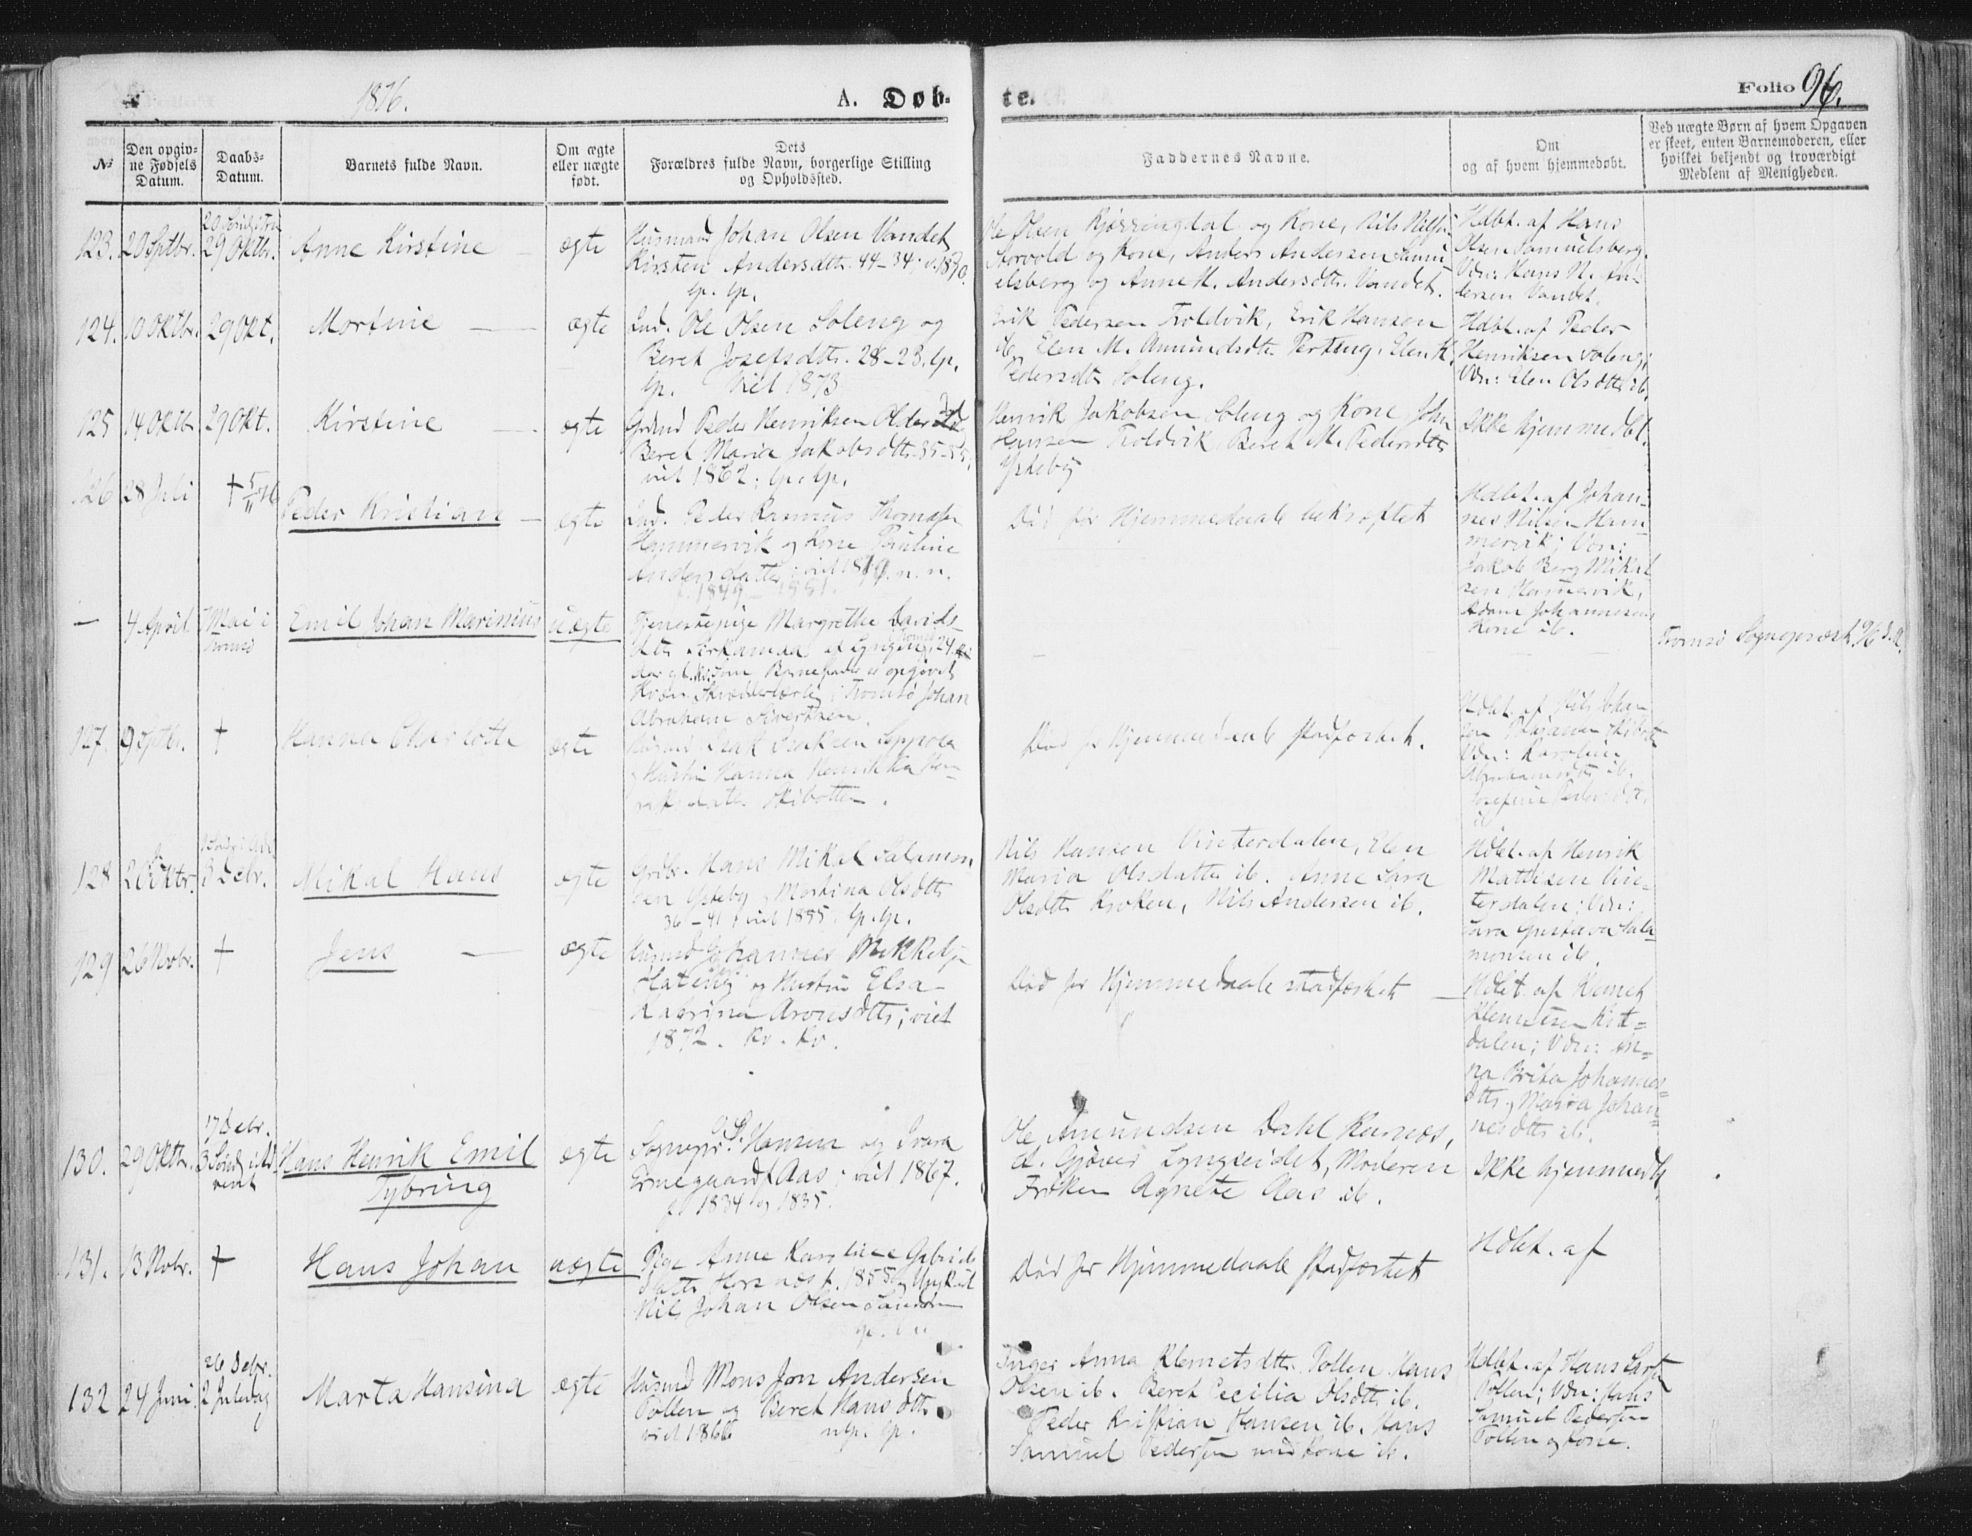 1876.
A. Døb-
te.
Folio 96.
No
Den opgiv-
ne Fødsels
Datum.
Daabs-
Datum.
Barnets fulde Navn.
Om ægte
eller uægte
født.
Dets
Forældres fulde Navn, borgerlige Stilling
og Opholdssted.
Faddernes Navne.
Om
og af hvem hjemmedøbt.
Ved uægte Børn af hvem Opgaven
er skeet, enten Barnemoderen, eller
hvilket bekjendt og troværdigt
Medlem af Menigheden.
123. 20 Sptbr. 29 Oktbr. Anne Kirstine ægte
Husmand Johan Olsen Vandet
Kirsten Andersdttr. 44-34; v. 1870.
lp. lp.
Ole Olsen Kjøssingdal og Kone, Nils Nilsen
Storvold og Kone, Anders Andersen Samu-
elsberg og Anne M. Andersdttr. Vandet.
Hdbt. af Hans
Olsen Samuelsberg.
Vdn: Hans N. An-
dersen Vandet.
124. 10 Oktbr. 29 Okt. Mortine ægte
Ind. Ole Olsen Soleng og
Beret Josefsdttr. 28-23. lp.
lp. Viet 1873
Erik Pedersen Troldvik, Erik Hansen
ib, Elen M. Amundsdttr. Elen K.
Pedersdttr Soleng.
Hdbt. af Peder
Henriksen Soleng;
Vdn: Elen Olsdttr ib.
125 14 Oktbr 29 Okt. Kirstine ægte
Grdmd Peder Henriksen
Beret Maria Jakobsdttr. 35-35;
viet 1862; lp. lp.
Henrik Jakobsen Soleng og Kone, John
Hansen Troldvik, Beret M. Pedersdttr
Ysteby
Ikke hjemmedbt.
126 28 Juli † 5/11 76 Peder Kristian ægte
Ind. Peder Rasmus Thomassen
Hammervik og Kone Pauline
Andersdatter; viet n. n.
f. 1849 - 1851.
Død før Hjemmedaab bekræftet
Hdbt. af Johan-
nes Nilsen Ham-
mervik; Vdn:
Jakob Berg Mikal-
sen Hamnvik,
Adam Johannesens
Kone ib.
— 4 April Mai i
Tromsø
Emil Johan Marinius uægte
Tjenestepige Margrethe Davids-
dttr
Aar gl. som Barnefader er opgivet
Tromsø Johan
Abraham Sivertsen.
Tromsø Sognepræst
127 9 Sptbr. † Hanna Charlotte ægte
Husmd Isak Isaksen
Hustru Hanna Henrikka Hen-
riksdatter Skibotten.
Død før Hjemmedaab stadfæstet.
Hdbt. af Nils Johan-
Vdn: Karoline
Abrahamsdttr ib.
Josefine Pedersdtr.
ib
128 20 Oktbr. 3 Debr. Mikal Hans ægte
Grdbr. Hans Mikal Salamon-
sen Ysteby, Martina Olsdttr
36-41; viet 1885. lp. lp.
Nils Hansen Vinterdalen, Elen
Maria Olsdatter ib. Anne Sara
Olsdttr Kroken, Nils Andersen ib.
Hdbt. af Henrik
Mathisen Vin-
terdalen; Vdn:
Sara Gustava Sala-
monsen ib.
129 26 Nobr. † Jens ægte
Husmd Johannes Mikkelsen
Hateng og Hustru Elsa
Katrina Aronsdttr; viet
1872. kv. kv.
Død før Hjemmedaab stadfæstet
Hdbt. af Klemet
Klemetsen Kit-
dalen; Vdn: An-
na Brita Johannes-
dttr, Maria Johan-
nesdttr ib.
17 Debr.
130. 29 Oktbr. 3 Sønd. i Ad-
vent
Hans Henrik Emil
Tybring
ægte
Sognepr. O. P. Hansen og Ivara
Ermegaard Aas; viet 1867.
f. 1834 og 1835.
Ole Amundsen Dahl Karnæs,
A. Gjæver Lyngseidet, Moderen
Frøken Agnete Aas ib.
Ikke hjemmedbt.
131. 13 Nobr. † Hans Johan uægte
Pige Anne Karoline Gabriels-
datter Hornæs f. 1855 og Ungkarl
Nils Johan Olsen
Død før Hjemmedaab stadfæstet
Hdbt. af
26 Debr.
132 24 Juni 2 Juledag Marta Hansina ægte
Husmd Mons Jon Andersen
Pollen og Beret Hansdttr
viet 1866 nlp. lp.
Inger Anna Klemetsdttr. Pollen, Hans
Olsen ib. Beret Cecilia Olsdttr ib.
Peder Kristian Hansen ib. Hans
Samuel Pedersen med Kone ib.
Hdbt. af Hans Larsen
Pollen; Vdn: Hans
Samuel Pedersen
Pollen og Kone.